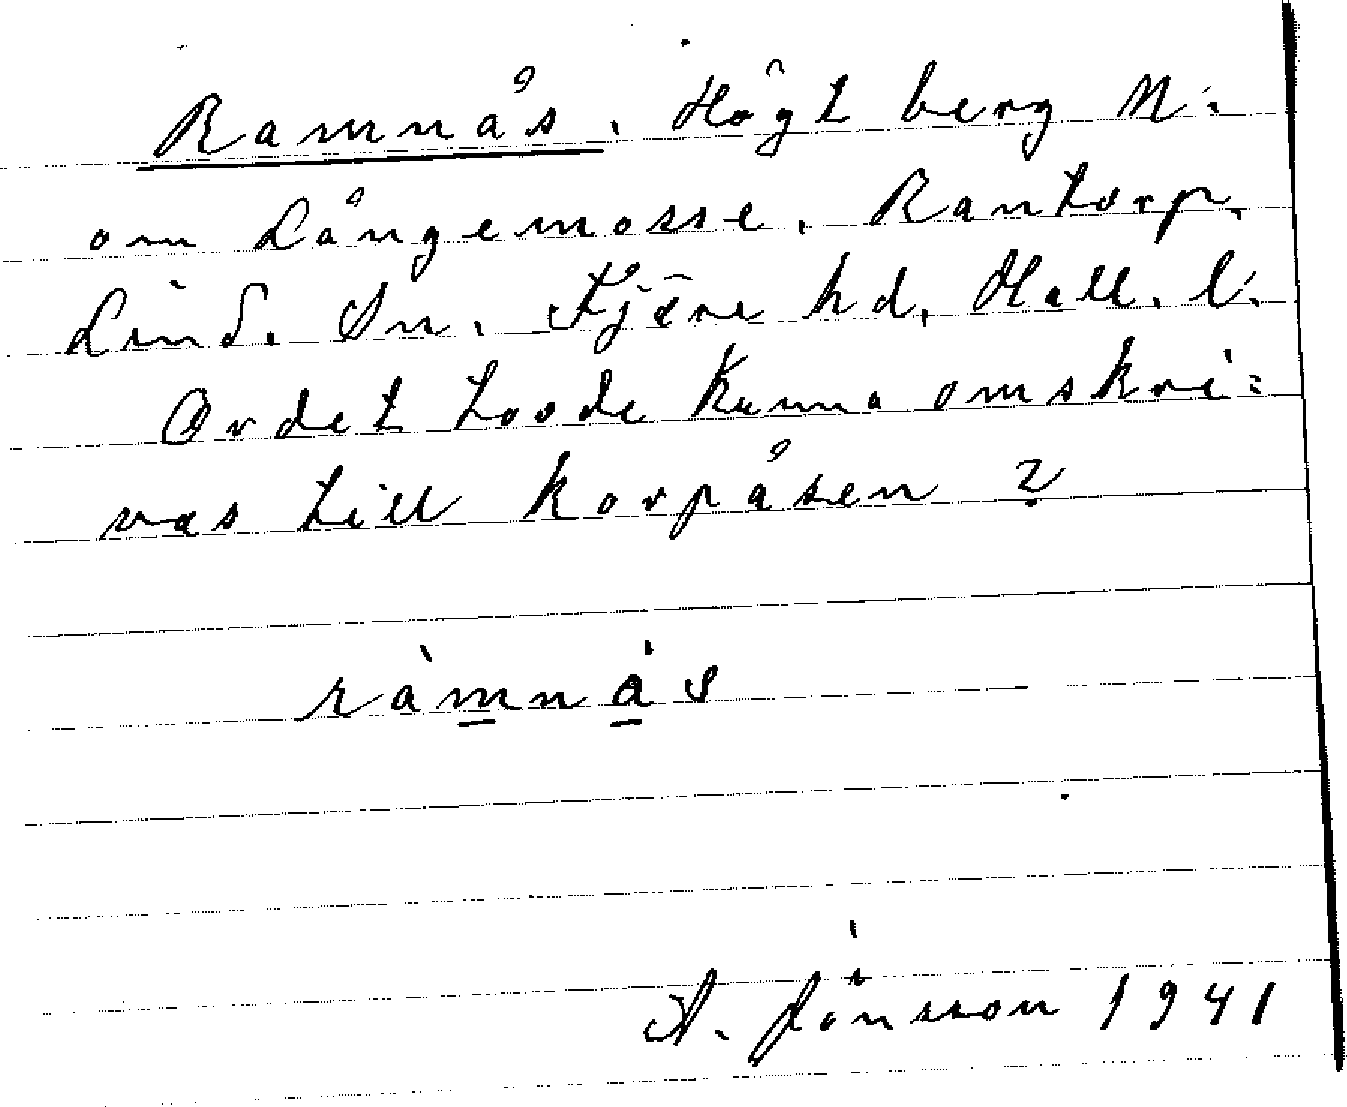 Ramnås. Högt berg N.
om Långemosse. Rantorp,
Lind. Sn. Fjäre hd, Hall. l.
Ordet torde kunna omskri=
vas till korpåsen ?
ràmnås
A. Jönsson 1941